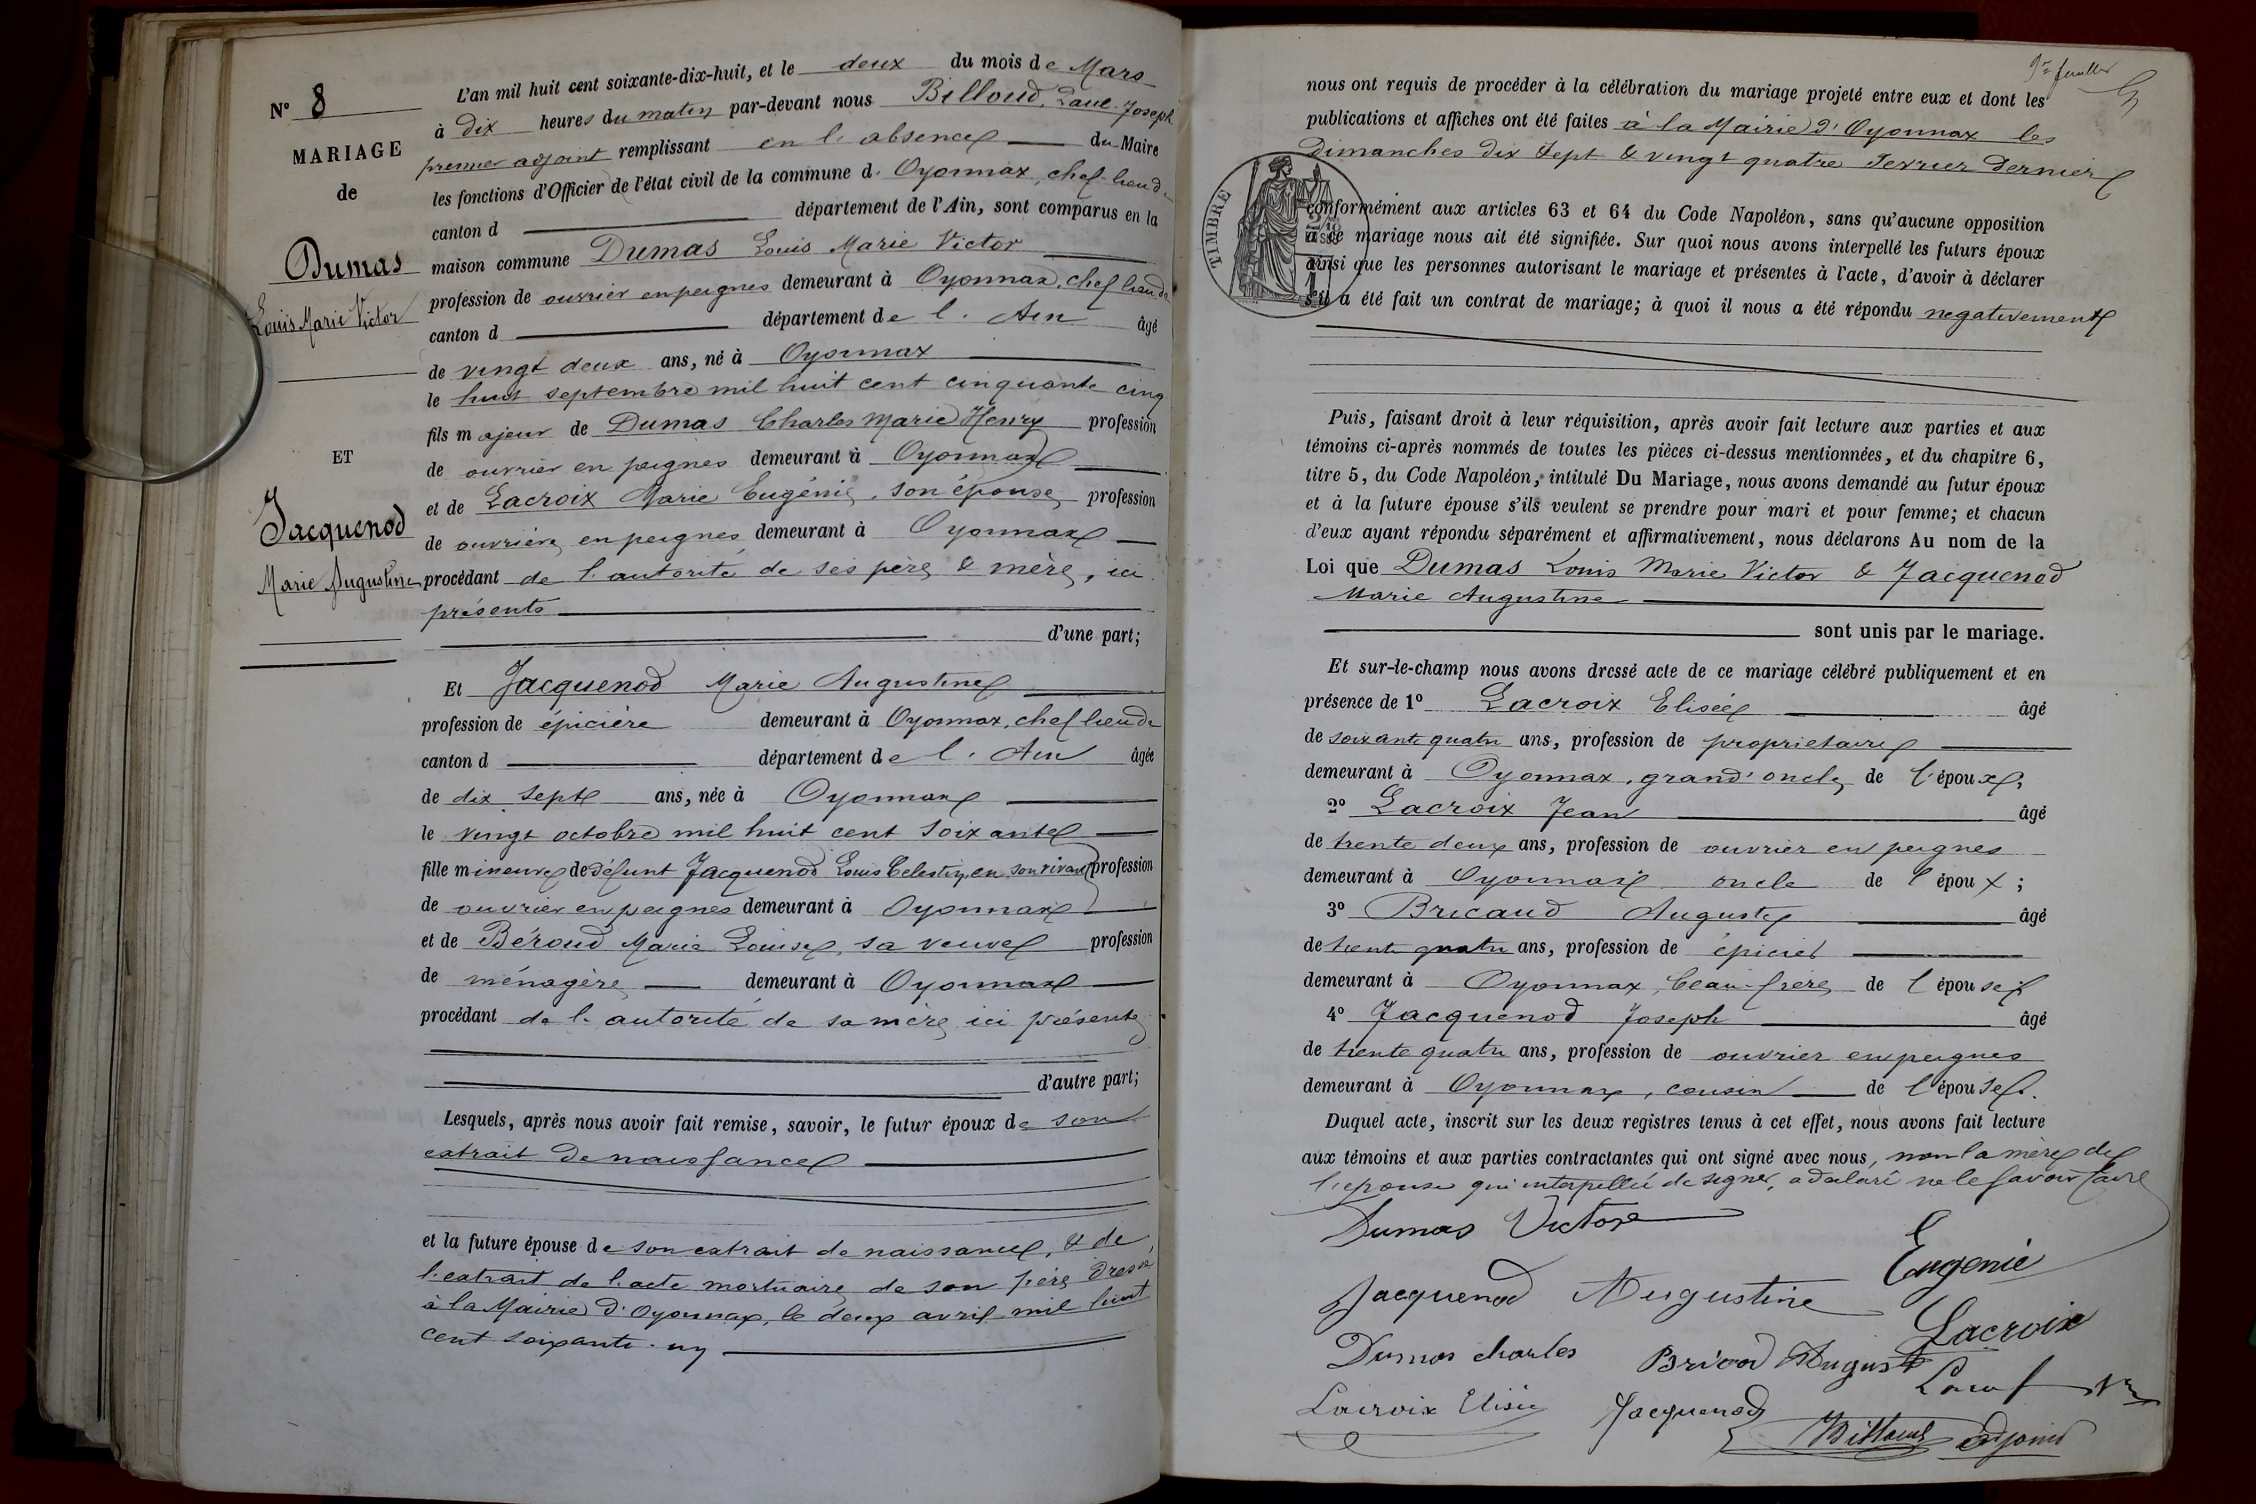 N° 8
MARIAGE
de
Dumas
Louis Marie Victor
ET
Jacquenod
Marie Augustine
L'an mil huit cent soixante-dix-huit, et le deux du mois de Mars
à dix heures du matin par-devant nous Billoud, Paul Joseph
premier adjoint remplissant en l'absence du Maire
les fonctions d'Officier de l'état civil de la commune d'Oyonnax, chef-lieu de
canton d département de l'Ain, sont comparus en la
maison commune Dumas Louis Marie Victor
profession de ouvrier en peignes demeurant à Oyonnax, chef lieu de
canton d département de l'Ain âgé
de vingt deux ans, né à Oyonnax
le huit septembre mil huit cent cinquante cinq
fils majeur de Dumas Charles Marie Henry profession
de ouvrier en peignes demeurant à Oyonnax
et de Lacroix Marie Eugénie, son épouse profession
de ouvrière en peignes demeurant à Oyonnax
procédant de l'autorité de ses père & mère, ici
présents
d'une part;
Et Jacquenod Marie Augustine
profession de épicière demeurant à Oyonnax, chef lieu de
canton d département de l'Ain âgée
de dix sept ans, née à Oyonnax
le vingt octobre mil huit cent soixante
fille mineure de défunt Jacquenod Louis Célestin, en son vivant profession
de ouvrier en peignes demeurant à Oyonnax
et de Béroud Marie Louise, sa veuve profession
de ménagère demeurant à Oyonnax
procédant de l'autorité de sa mère ici présente
d'autre part;
Lesquels, après nous avoir fait remise, savoir, le futur époux de son
extrait de naissance
et la future épouse de son extrait de naissance, & de
l'extrait de l'acte mortuaire de son père dressé
à la Mairie d'Oyonnax, le deux avril mil huit
cent soixante un
9e feuillet
nous ont requis de procéder à la célébration du mariage projeté entre eux et dont les
publications et affiches ont été faites à la Mairie d'Oyonnax les
Dimanches dix sept & vingt quatre Fevrier dernier
TIMBRE
conformément aux articles 63 et 64 du Code Napoléon, sans qu'aucune opposition
à ce mariage nous ait été signifiée. Sur quoi nous avons interpellé les futurs époux
ainsi que les personnes autorisant le mariage et présentes à l'acte, d'avoir à déclarer
s'il a été fait un contrat de mariage; à quoi il nous a été répondu negativement
Puis, faisant droit à leur réquisition, après avoir fait lecture aux parties et aux
témoins ci-après nommés de toutes les pièces ci-dessus mentionnées, et du chapitre 6,
titre 5, du Code Napoléon, intitulé Du Mariage, nous avons demandé au futur époux
et à la future épouse s'ils veulent se prendre pour mari et pour femme; et chacun
d'eux ayant répondu séparément et affirmativement, nous déclarons Au nom de la
Loi que Dumas Louis Marie Victor & Jacquenod
Marie Augustine
sont unis par le mariage.
Et sur-le-champ nous avons dressé acte de ce mariage célébré publiquement et en
présence de 1° Lacroix Elisée âgé
de soixante quatre ans, profession de propriétaire
demeurant à Oyonnax, grand'oncle de l'époux,
2° Lacroix Jean âgé
de trente deux ans, profession de ouvrier en peignes
demeurant à Oyonnax oncle de l'époux;
3° Bricaud Auguste âgé
de trente quatre ans, profession de épicier
demeurant à Oyonnax, beau-frère de l'épouse;
4° Jacquenod Joseph âgé
de trente quatre ans, profession de ouvrier en peignes
demeurant à Oyonnax, cousin de l'épouse.
Duquel acte, inscrit sur les deux registres tenus à cet effet, nous avons fait lecture
aux témoins et aux parties contractantes qui ont signé avec nous, non la mère de
l'épouse qui interpellée de signer, a déclaré ne le savoir faire
Dumas Victor
Eugenie
Jacquenod Augustine
Lacroix
Dumas charles
Bricod August
Lacroix Elisée
Jacquenod
Billoud adjoint